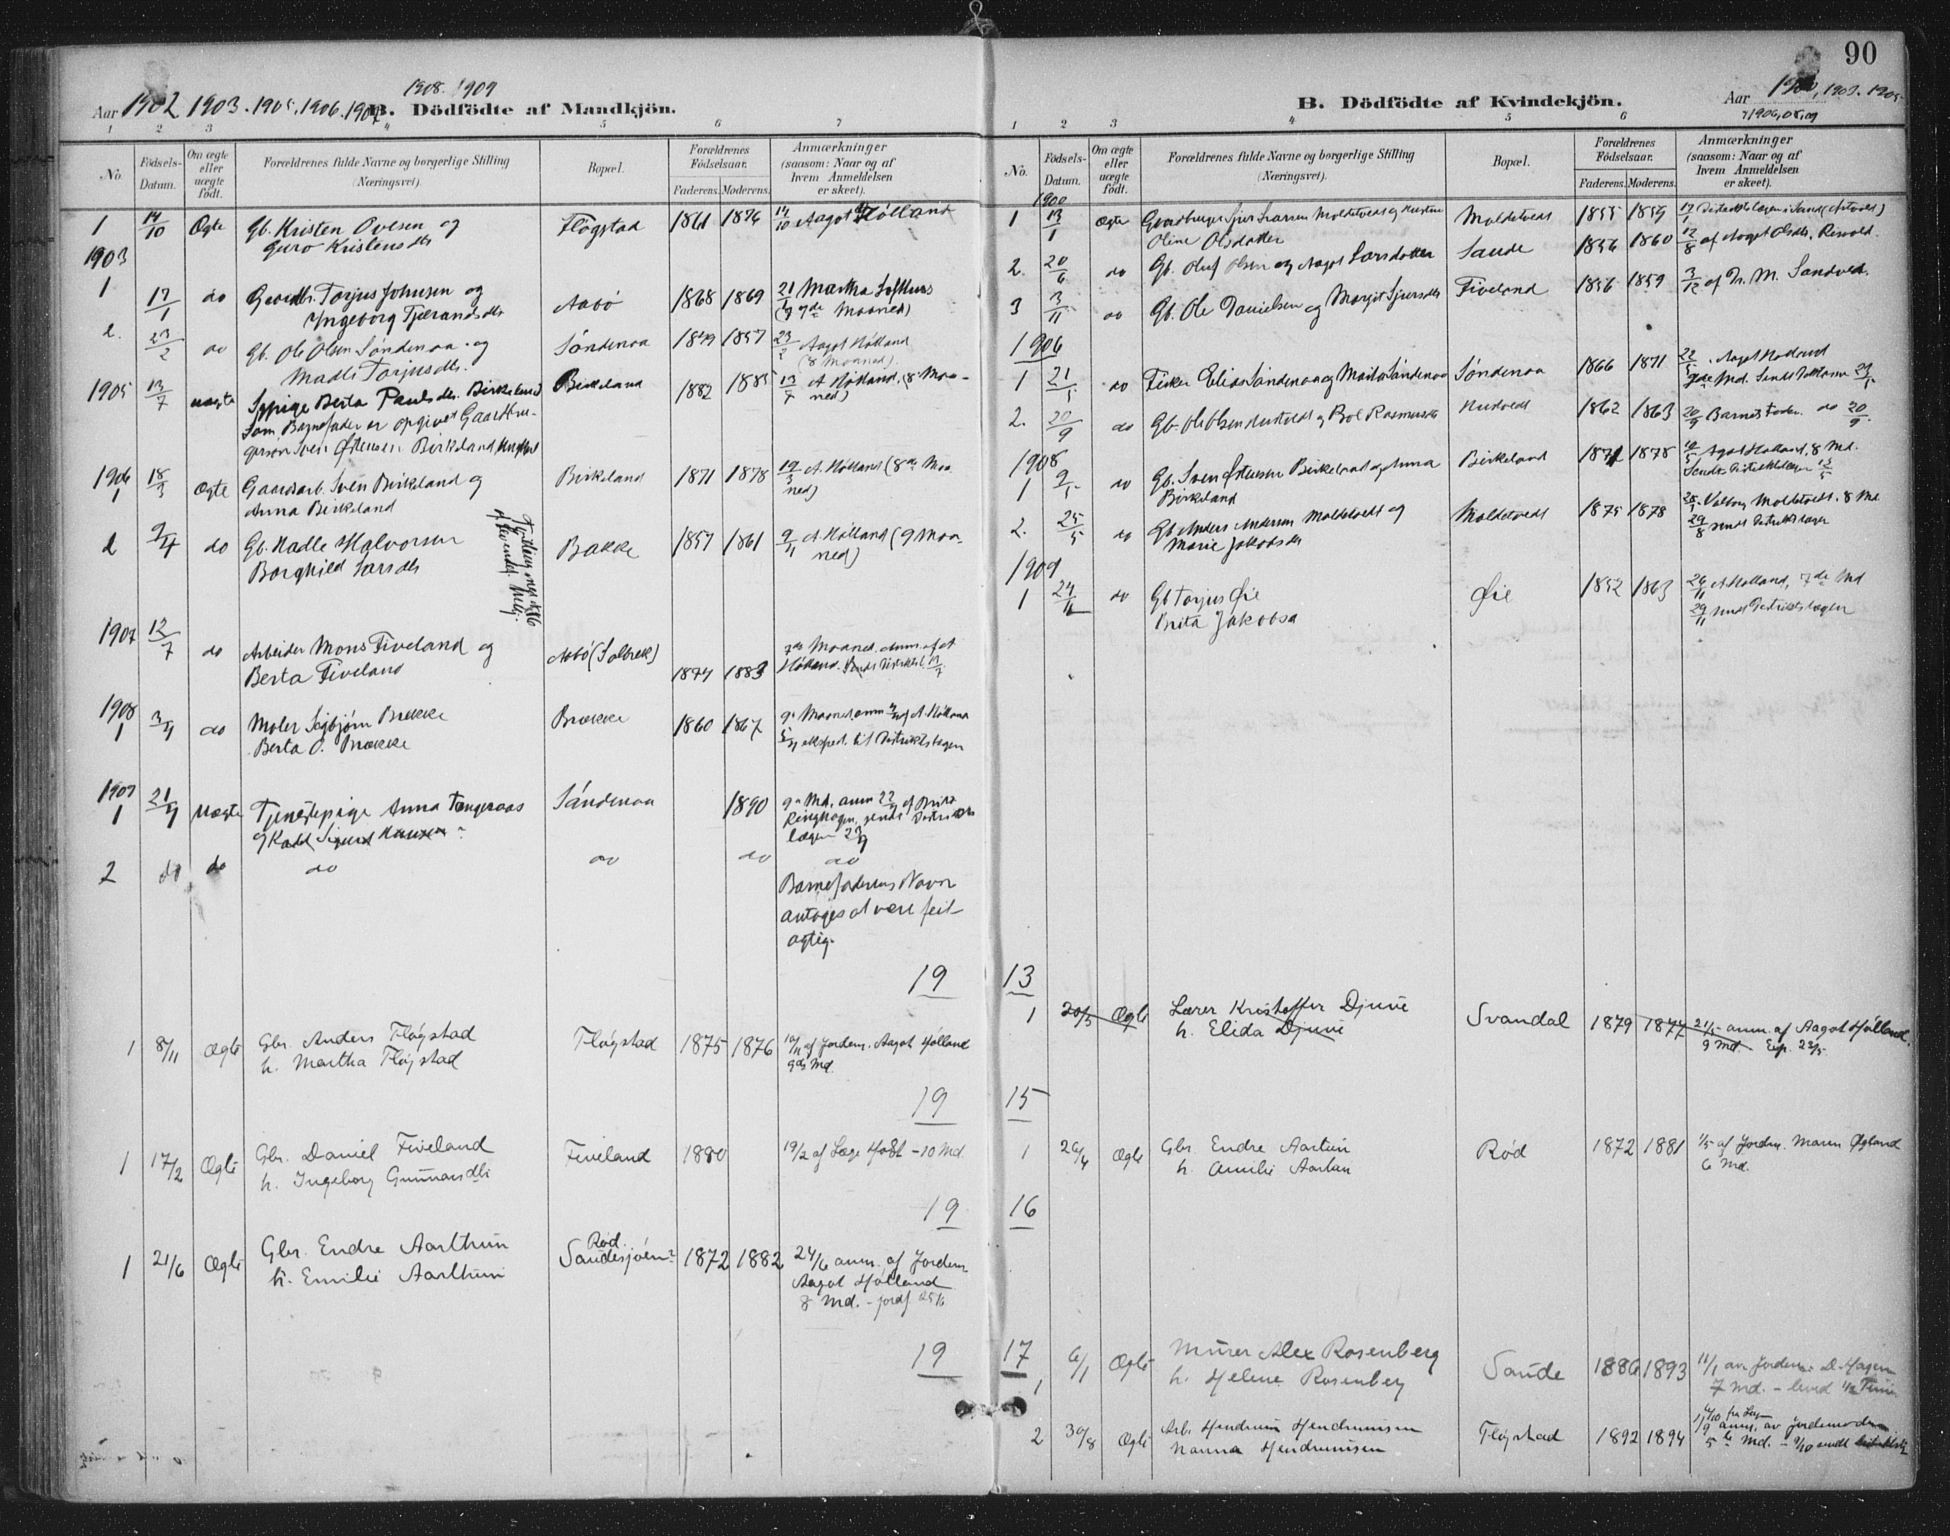 90
1908. 1909
Aar 1902 1903. 1905. 1906. 1907
B. Dödfödte af Mandkjön.
1 2 3 4 5 6 7
No.
Födsels-Datum.
Om ægte eller uægte födt.
Forældrenes fulde Navne og borgerlige Stilling (Næringsvei).
Bopæl.
Forældrenes Födselsaar.
Faderens. Moderens.
Anmærkninger (saasom: Naar og af hvem Anmeldelsen er skeet).
1 14/10 Ægte Gb. Kristen Ovesen og Flögstad 1861 1876 14/10 Aagot Hölland
Guro Kristensdtr
1903
1 17/1 do Gaardbr. Torjus Johnsen og Aabö 1868 1869 21/1 Martha Lofthus
Ingeborg Tjerandsdtr (7de Maaned)
2. 23/2 do Gb. Ole Olsen Söndenaa og Söndenaa 1849 1857 23/2 Aagot Hölland
Madli Torjusdtr. (8 Maaned)
1905 13/7 uægte Pige Berta Paulsdtr. Birkeland Birkeland 1882 1885 13/7 A Hölland (8 Maaned)
Som Barnefader er opgivet
Sven Östensen Birkeland
1906
1 18/3 Ægte Gaardarb. Sven Birkeland og Birkeland 1871 1878 19/3 A Hölland (8de Maaned)
Anna Birkeland
2 9/4 do Gb. Nadle Halvorsen Bakke 1857 1861 A Hölland (9 Maaned)
Borghild Larsdtr
1907 12/7 do Arbeider Mons Fiveland og Aabö (Solbrek) 1874 1883 7de Maaned. Anm. af A
Berta Fiveland Hölland.
1908
1 3/4 do Maler Sigbjörn Brække Brække 1860 1867 9de Maaned, anm af A Hölland
Berta O. Brække eksped. til Distriktslægen
1909
1 21/9 Uægte Tjenestepige Anna Tengeraas Söndenaa 1890 9de Md. anm 22/9 af Brita
og Kadet Sigurd Hansen? Ringhagen, sendt Distriktslægen 23/9
2 do do do do do do
Barnefaderens Navn
antages at være feil-
agtig.
19
1 8/11 Ægte Gbr. Anders Flögstad Flögstad 1875 1876 10/11 af Jordm. Aagot Hölland
h. Martha Flögstad 9de Md.
19
1 17/2 Ægte Gbr. Daniel Fiveland Fiveland 1880 19/2 af Læge Holst - 10 Md.
h. Ingeborg Gunnarsdtr
19
1 21/6 Ægte Gbr. Endre Aarthun Röd. Saudesjöen? 1872 1882 24/6 anm. af Jordm
h. Emilie Aarthun Aagot Hölland
8 Md. - jordf 25/6
19
B. Dödfödte af Kvindekjön.
Aar 1900, 1903. 1905
1906, 08, 09
1 2 3 4 5 6
No.
Födsels-Datum.
Om ægte eller uægte födt.
Forældrenes fulde Navne og borgerlige Stilling (Næringsvei).
Bopæl.
Forældrenes Födselsaar.
Faderens. Moderens.
Anmærkninger (saasom: Naar og af hvem Anmeldelsen er skeet).
1900
1 13/1 Ægte Gaardbruger Sjur Larsen Moldetvedt og Hustru Moldetvedt 1855 1859
Oline Olsdatter
2. 20/6 do Gb. Oluf Olsen og Aagot Larsdatter Saude 1856 1860 12/8 af Aagot Olsdtr.
3 3/11 do Gb. Ole Danielsen og Margit Sjursdtr Fiveland 1856 1859 3/12 af M. Sandved.
1906
1 21/5 do Fisker Elias Söndenaa og Söndenaa Söndenaa 1866 1871 22/5 Aagot Hölland
2. 20/9 do Gb. Ole Olsen og Bol Rasmusdtr 1862 1863 20/9 Barnets Fader. do 20/9
1908
1 9/5 do Gb. Sven Östensen Birkeland og Anna Birkeland 1871 1878 Agot Hölland, 8 Md.
Birkeland Sendt Distriktslægen
2. 25/5 do Gb Anders Andersen Moldetvedt og Moldetvedt 1875 1878 Moldetvedt. 8 Md
Marie Jakobsdtr sendt Distriktslægen
1909
1 24/11 do Gb Torjus Öie Öie 1852 1863 26/11 A Hölland, 7de Md
Brita Jakobsd 29/11 sendt Distriktslægen
13
1 20/5 Ægte Lærer Kristoffer Djuve Svandal 1879 1877 21/5 anm. af Aagot Hölland.
h. Elida Djuve 9 Md. Exp. 22/5
15
1 26/4 Ægte Gbr. Endre Aartun Röd 1872 1881 1/5 af Jordm. Maren Øgland
h. Amilie Aartun 6 Md.
16
17
1 6/1 Ægte Murer Alex Rosenberg Saude 1886 1893 11/1 av Jordm. D. Hagen
h. Helene Rosenberg 7 Md. - levid 1/2 Time
2 30/8 Ægte Arb. Hendrum Hendrumsen Flögstad 1892 1894 1/9 anm. av Jordmoderen
Nanna Hendrumsen 5te Md. - 9/10 sendt